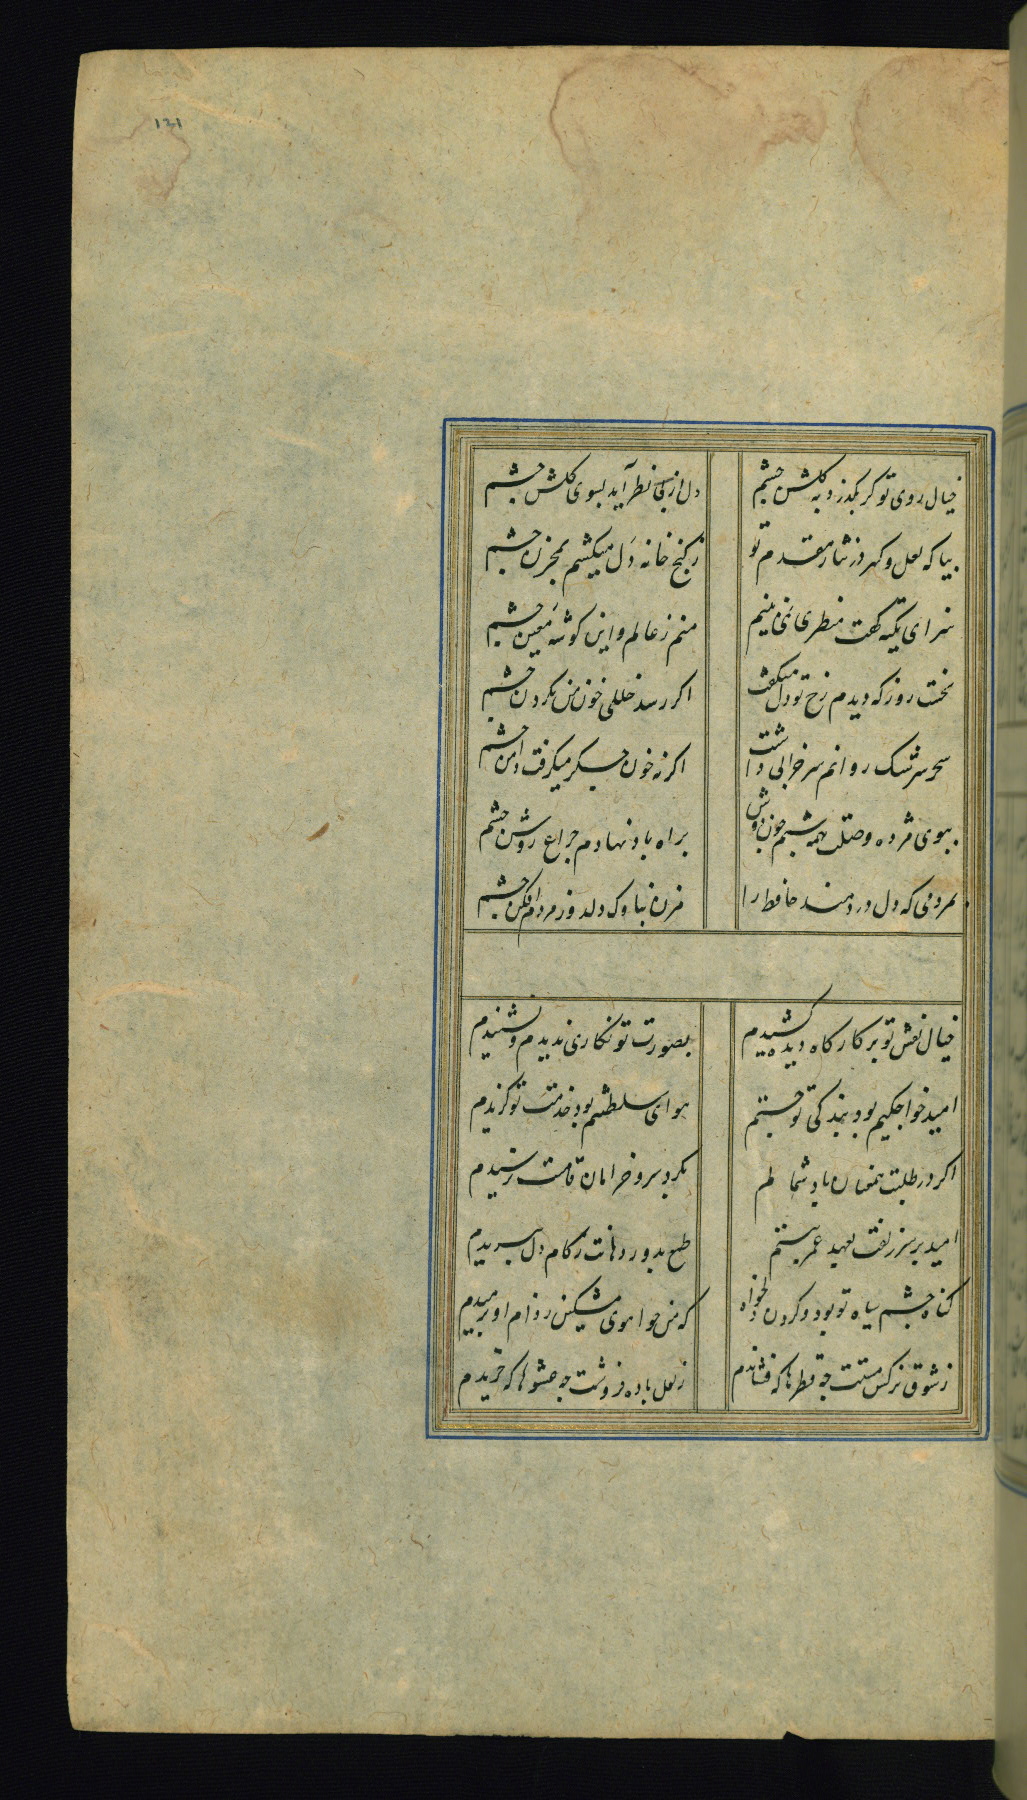 121
خیال روی تو کر بکذرد به کلشن چشم
دل از پی نظر آید بسوی کلشن چشم
بیا که لعل و کهر در نثار مقدم تو
ز کنج خانه دل میکشم بمخزن چشم
سزای تکیه کهت منظری نمی بینم
منم ز عالم و این کوشه معین چشم
نخست روز که دیدم رخ تو دل میکفت
اکر رسد خللی خون من بکردن چشم
سحر سرشک روانم سر خرابی داشت
اکر نه خون جیکر میکرفت دامن چشم
ببوی مژده وصلت همه شب دوش
براه باد نهادم چراغ روشن چشم
بمردمی که دل دردمند حافظ را
مزن بناوک دلدوز مردم افکن چشم
خیال نقش تو بر کارکاه دیده کشیدم
بصورت تو نکاری ندیدم و نشنیدم
امید خواجکیم بود بندکی تو جستم
هوای سلطنتم بود خدمت تو کزیدم
اکر در طلبت همعنان باد شمالم
بکرد سرو خرامان قامتت نرسیدم
امید بر سر زلفت بعهد عمر ببستم
طمع بدور دهانت ز کام دل ببریدم
کناه چشم سیاه تو بود و کردن دلخواه
که من چو اهوی مشکین ز دام او برمیدم
ز شوق نرکس مستت چه قطرها که فشاندم
ز لعل باده فروشت چه عشوها که خریدم